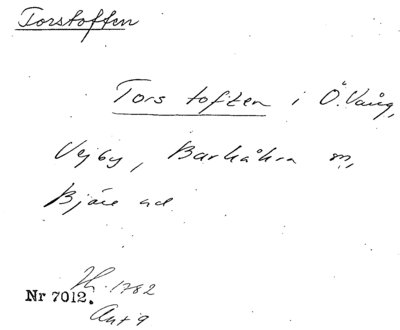 Torstoften
Tors toften i Ö. Vång,
Vejby, Barkåkra sn,
Bjäre hd.
Nr 7012.
1782